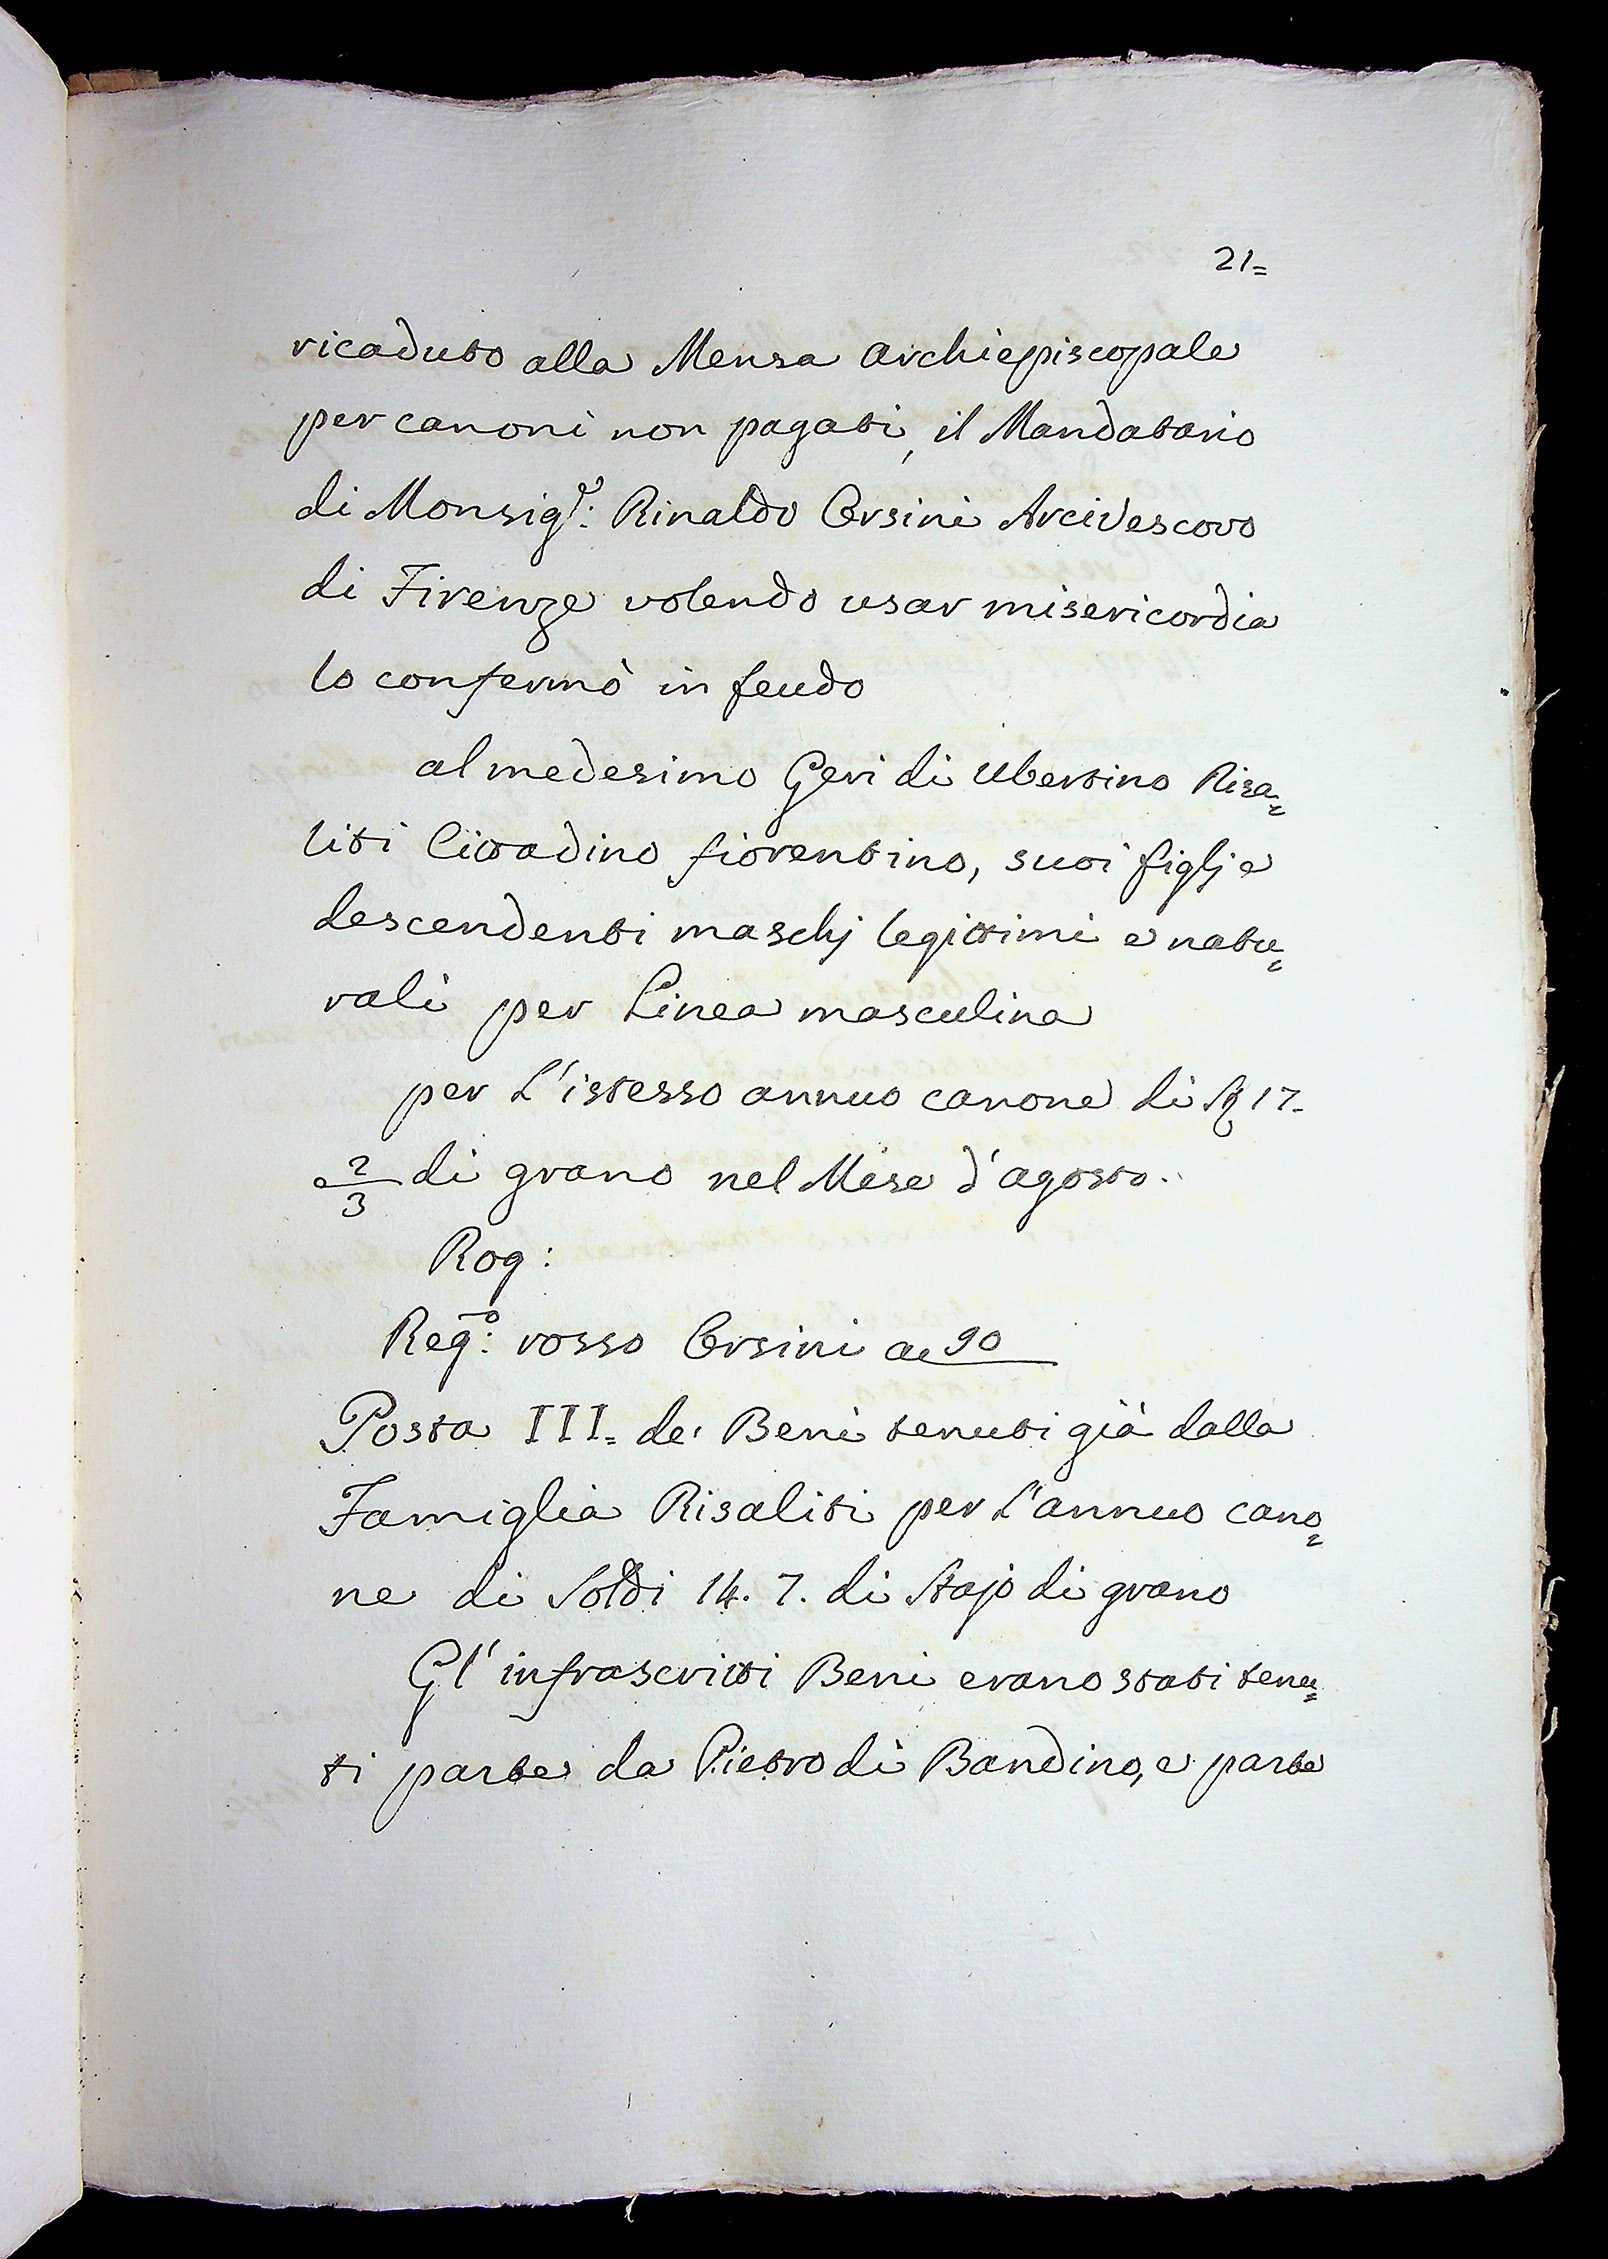 21=
ricaduto alla Mensa Archiepiscopale
per canoni non pagati, il Mandatario
di Monsig.r: Rinaldo Orsini Arcivescovo
di Firenze volendo usar misericordia
lo confermò in feudo
al medesimo Geri di Ubertino Risa=
liti Cittadino fiorentino, suoi figlj e
descendenti maschj legittimi e natu=
rali per Linea masculina
per L'istesso annuo canone di St 17.
e 2/3 di grano nel Mese d'agosto.
Rog:
Reg.o: rosso Orsini a 90
Posta III. de' Beni tenuti già dalla
Famiglia Risaliti per L'annuo cano=
ne di Soldi 14. 7. di Stajo di grano
Gl'infrascritti Beni erano stati tenu=
ti parte da Pietro di Bandino, e parte